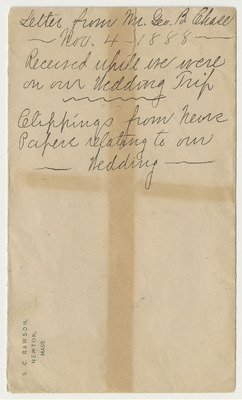 Letter from Mr. Geo. B. Chase
Nov. 4 - 1888
Received while we were
on our Wedding Trip
Clippings from News
Papers relating to our
Wedding
S. C. RAWSON,
NEWTON,
MASS.